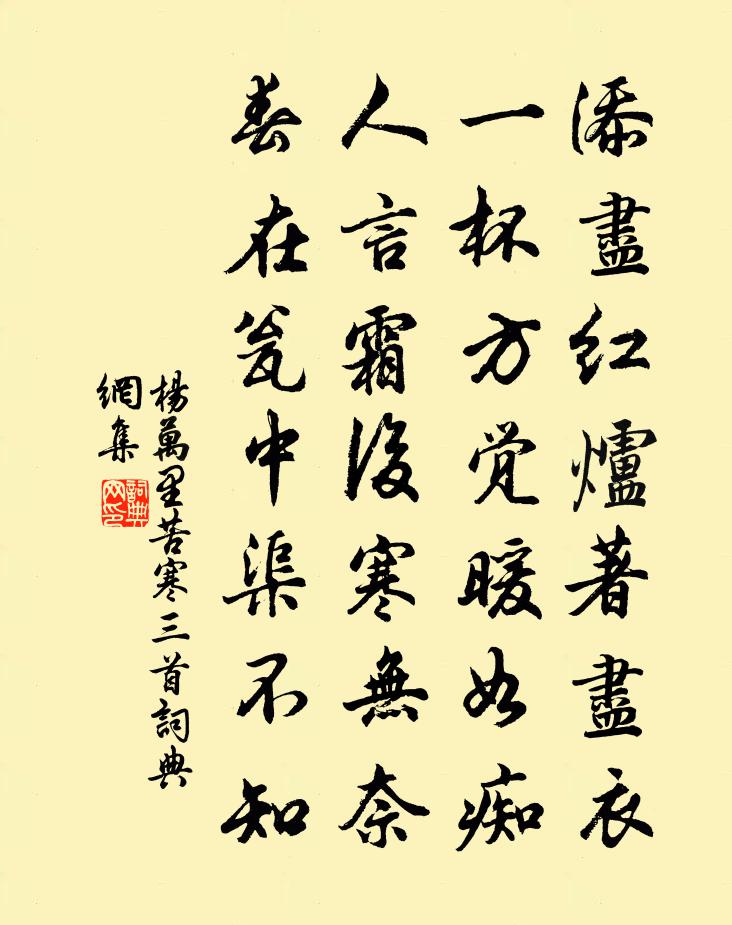 添盡紅爐著盡衣
一杯方觉暖如痴
人言霜後寒無奈
春在瓮中渠不知
楊萬里苦寒三首詞典
網集
詞典
网印